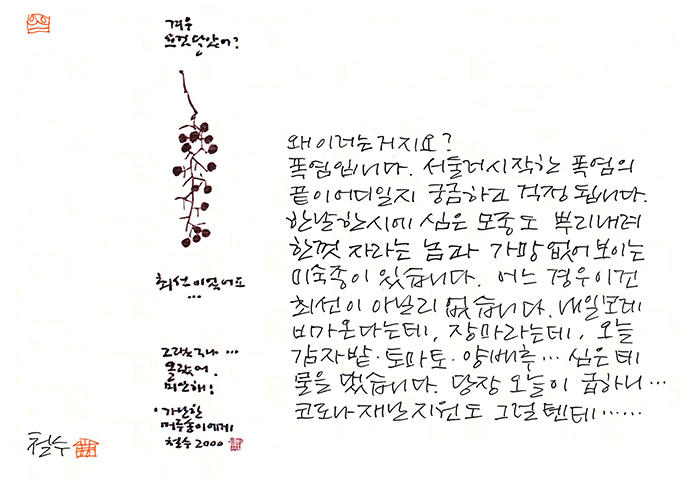 겨우
요것 달았어?
최선이었어요
...
그랬구나...
몰랐어.
미안해!
· 가난한
머루송이에게
철수 2000
철수
왜 이러는 거지요?
폭염입니다. 서둘러 시작한 폭염의
끝이 어디일지 궁금하고 걱정 됩니다.
한날 한시에 심은 모종도 뿌리내려
한껏 자라는 놈과 가망 없어 보이는
미숙종이 있습니다. 어느 경우이건
최선이 아닐리 없습니다. 내일모레
비가 온다는데, 장마라는데, 오늘
감자밭·토마토·양배추... 심은 데
물을 댔습니다. 당장 오늘이 급하니...
코로나 재난지원도 그럴텐데......